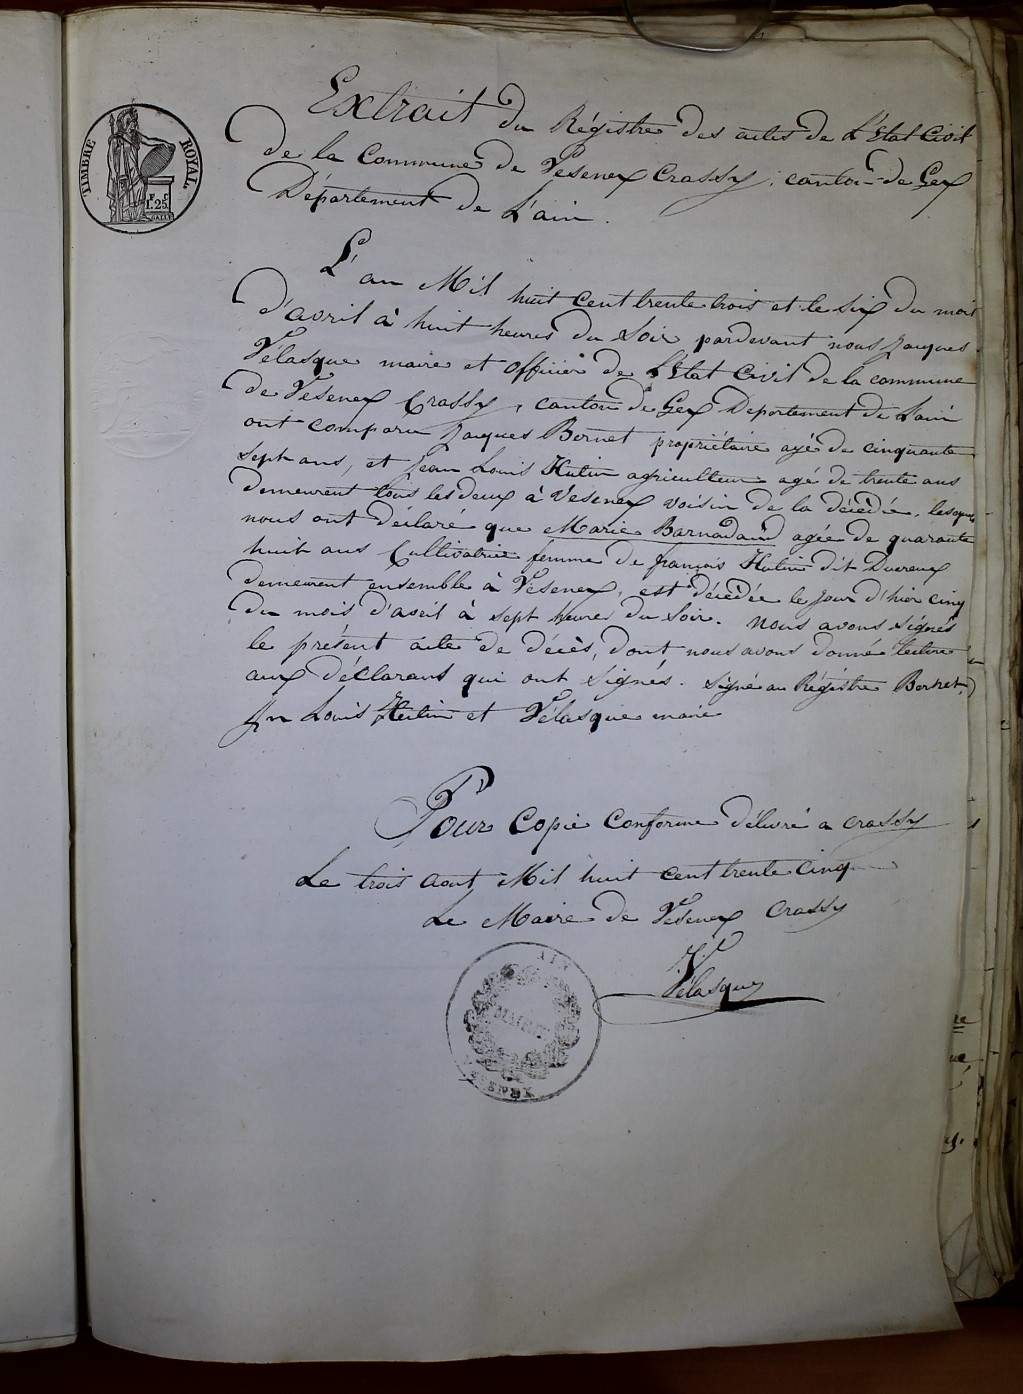 TIMBRE ROYAL
1 F. 25
Extrait du Régistre des actes de l'Etat Civil
de la Commune de Vesenex Crassy, canton de Gex
Département de L'ain.
L'an Mil huit cent trente trois et le six du mois
d'avril à huit heures du Soir pardevant nous Jacques
Vélasque maire et officier de l'Etat Civil de la commune
de Vesenex Crassy, canton de Gex Département de L'ain
ont comparu Jacques Bernet propriétaire agé de cinquante
sept ans, et Jean Louis Hutin agriculteur agé de trente ans
demeurent tous les deux à Vesenex voisin de la décèdée, lesquels
nous ont déclaré que Marie Barnadaud agée de quarante
huit ans Cultivatrice femme de françois Hutin dit Ducreux
demeurent ensemble à Vesenex, est décèdée le jour d'hier cinq
du mois d'avril à sept heures du Soir. Nous avons signés
le présent acte de décès, dont nous avons donné lecture
aux déclarans qui ont signés. Signé au Régistre Bernet,
Jn Louis Hutin et Vélasque maire
Pour Copie Conforme délivré a crassy
Le trois Aout Mil huit cent trente cinq
Le Maire de Vesenex Crassy
Vélasque
AIN
MAIRIE